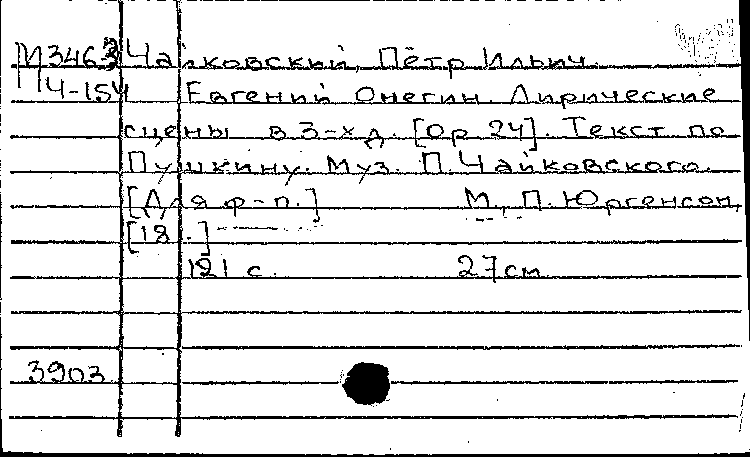 М3463 Чайковский, Пётр Ильич.
Ч-154 Евгений Онегин. Лирические
сцены в 3-х д. [Ор 24]. Текст по
Пушкину. Муз. П. Чайковского.
[Для ф-п.] М., П. Юргенсон,
[18 .]
121 с. 27 см
3903